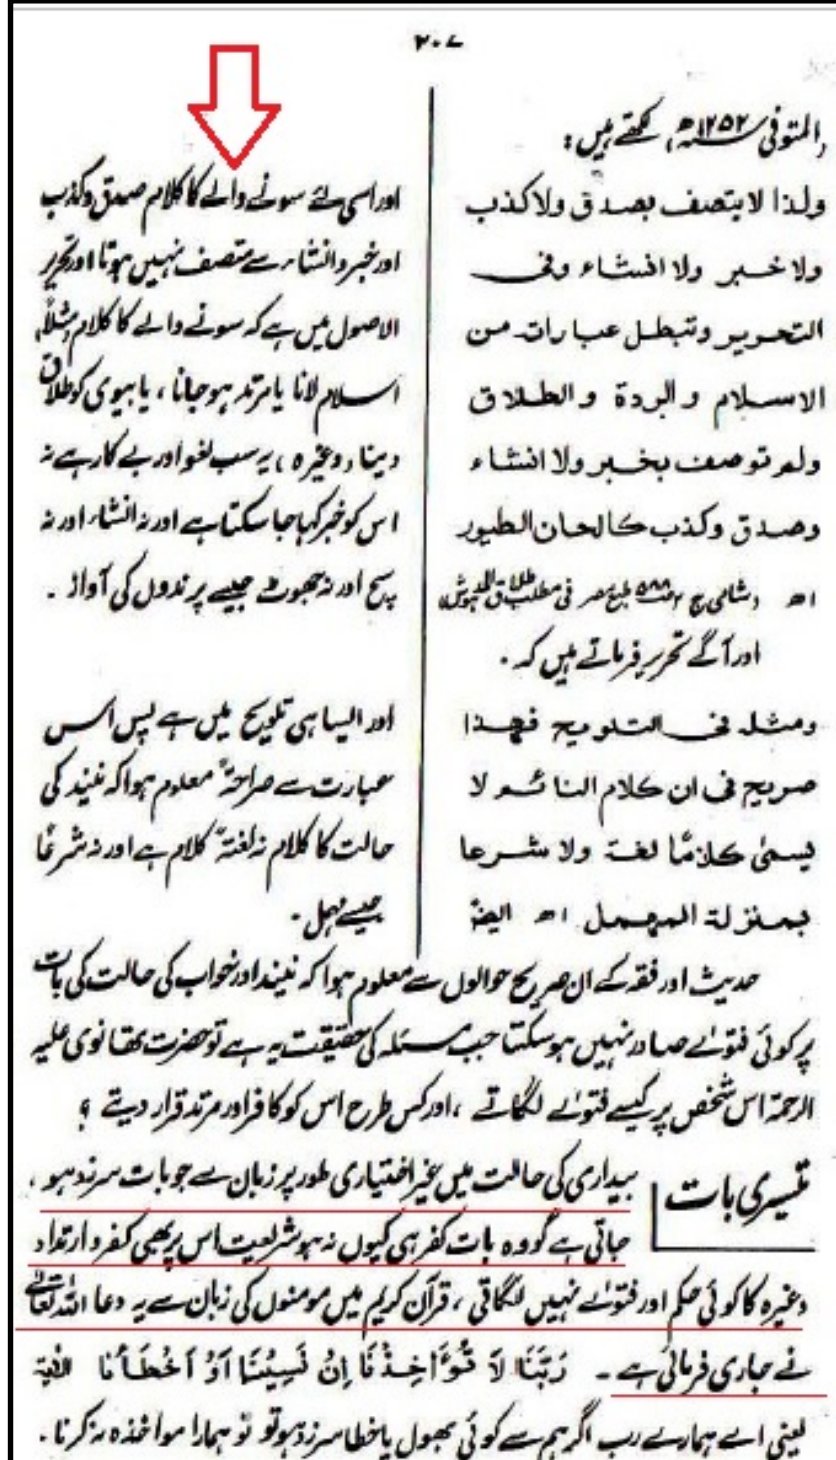 ۲۰۷
المتوفی ۱۲۵۲ھ، لکھتے ہیں:
ولذا لا يتصف بصدق ولا كذب
ولا خبر ولا انشاء وفی
التحریر وتبطل عباراتہ من
الاسلام والردة والطلاق
ولم توصف بخبر ولا انشاء
وصدق وكذب كالحان الطيور
اھ (شامی ج ۲ ص ۵۸۸ طبع مصر فی مطلب طلاق المدہوش
اور اسی لئے سونے والے کا کلام صدق وکذب
اور خبر وانشاء سے متصف نہیں ہوتا اور تحریر
الاصول میں ہے کہ سونے والے کا کلام مثلاً
اسلام لانا یا مرتد ہو جانا، یا بیوی کو طلاق
دینا (وغیرہ) یہ سب لغو اور بے کار ہے نہ
اس کو خبر کہا جا سکتا ہے اور نہ انشاء اور نہ
سچ اور نہ جھوٹ جیسے پرندوں کی آواز ۔
اور آگے تحریر فرماتے ہیں کہ ۔
ومثلہ فی التلویح فھذا
صریح فی ان کلام النائم لا
یسمیٰ کلامًا لغة ولا شرعا
بمنزلة المهمل اھ ایضاً
اور ایسا ہی تلویح میں ہے پس اس
عبارت سے صراحۃً معلوم ہوا کہ نیند کی
حالت کا کلام نہ لغتہً کلام ہے اور نہ شرعًا
جیسے مہمل ۔
حدیث اور فقہ کے ان صریح حوالوں سے معلوم ہوا کہ نیند اور خواب کی حالت کی بات
پر کوئی فتوٰے صادر نہیں ہو سکتا جب مسئلہ کی حقیقت یہ ہے تو حضرت تھانوی علیہ
الرحمۃ اس شخص پر کیسے فتوٰے لگاتے، اور کس طرح اس کو کافر اور مرتد قرار دیتے ؟
تیسری بات
بیداری کی حالت میں غیر اختیاری طور پر زبان سے جو بات سرزد ہو،
جاتی ہے گو وہ بات کفر ہی کیوں نہ ہو شریعت اس پر بھی کفر و ارتداد
وغیرہ کا کوئی حکم اور فتوٰے نہیں لگاتی، قرآن کریم میں مومنوں کی زبان سے یہ دعا اللہ تعالٰے
نے جاری فرمائی ہے ۔ رَبَّنَا لَا تُؤَاخِذْنَا اِنْ نَّسِيْنَا اَوْ اَخْطَأْنَا الآیۃ
یعنی اے ہمارے رب اگر ہم سے کوئی بھول یا خطا سرزد ہو تو تو ہمارا مواخذہ نہ کرنا ۔